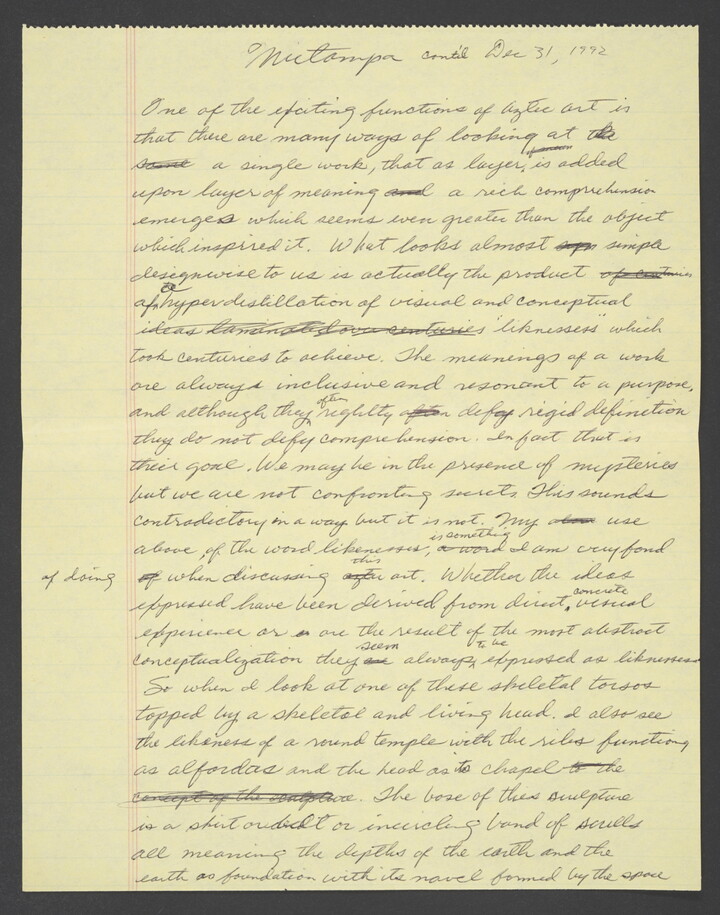 Mictampa cont'd Dec 31, 1992
One of the exciting functions of Aztec art is
that there are many ways of looking at the
same a single work, that as layer, of meaning is added
upon layer of meaning and a rich comprehension
emerges which seems even greater than the object
which inspired it. What looks almost simple
designwise to us is actually the product of centuries
of a hyper distillation of visual and conceptual
ideas laminated over centuries "liknessess" which
took centuries to achieve. The meanings of a work
are always inclusive and resonant to a purpose,
and although they often rightly often defy rigid definition
they do not defy comprehension. In fact that is
their goal. We may be in the presence of mysteries
but we are not confronting secrets. This sounds
contradictory in a way but it is not. My use
above, of the word likenesses, is something a word I am very fond
of doing of when discussing this aztec art. Whether the ideas
expressed have been derived from direct, concrete visual
experience or are the result of the most abstract
conceptualization they seem are always to be expressed as liknesses
So when I look at one of these skeletal torsos
topped by a skeletal and living head. I also see
the likeness of a round temple with the ribs functiong
as alfordas and the head as its chapel to the
concept of the sculpture. The base of this sculpture
is a skirt or belt or incircling band of sculls
all meaning the depths of the earth and the
earth as foundation with its navel formed by the space